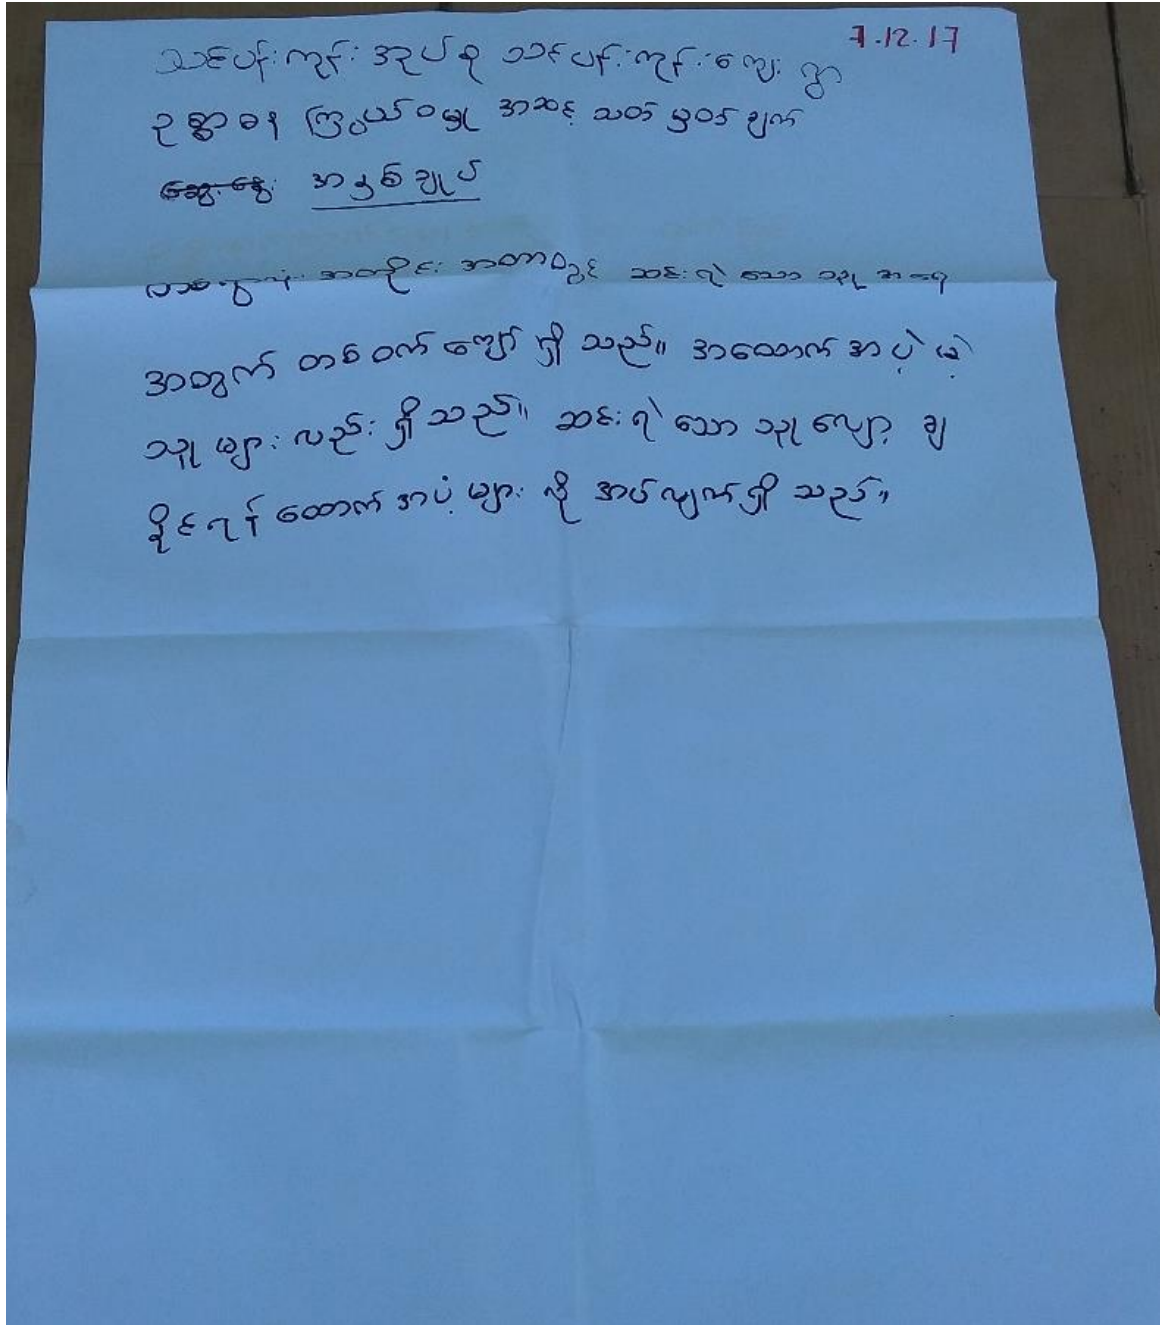 7.12.17
သင်ပန်းကုန်း အုပ်စု သင်ပန်းကုန်းကျေးရွာ
ဥစ္စာဓန ကြွယ်ဝမှု အဆင့် သတ်မှတ်ချက်
ဆွေးနွေး အနှစ်ချုပ်
အတိုင်းအတာတွင် ဆင်းရဲ သော သူ အရေ
အတွက် တစ်ဝက် ကျော် ရှိ သည်။ အထောက် အပံ့ မဲ့
သူ များ လည်း ရှိ သည်။ ဆင်းရဲ သော သူ လျော့ ချ
နိုင်ရန် ထောက်အပံ့ များ လို အပ်လျက်ရှိ သည်။